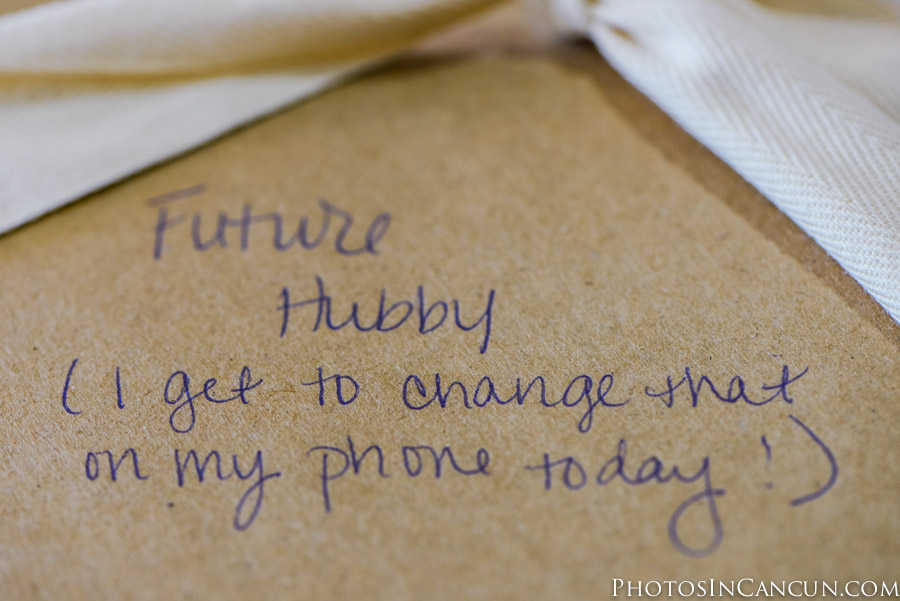 Future
Hubby
(I get to change that
on my phone today!)
PhotosInCancun.com